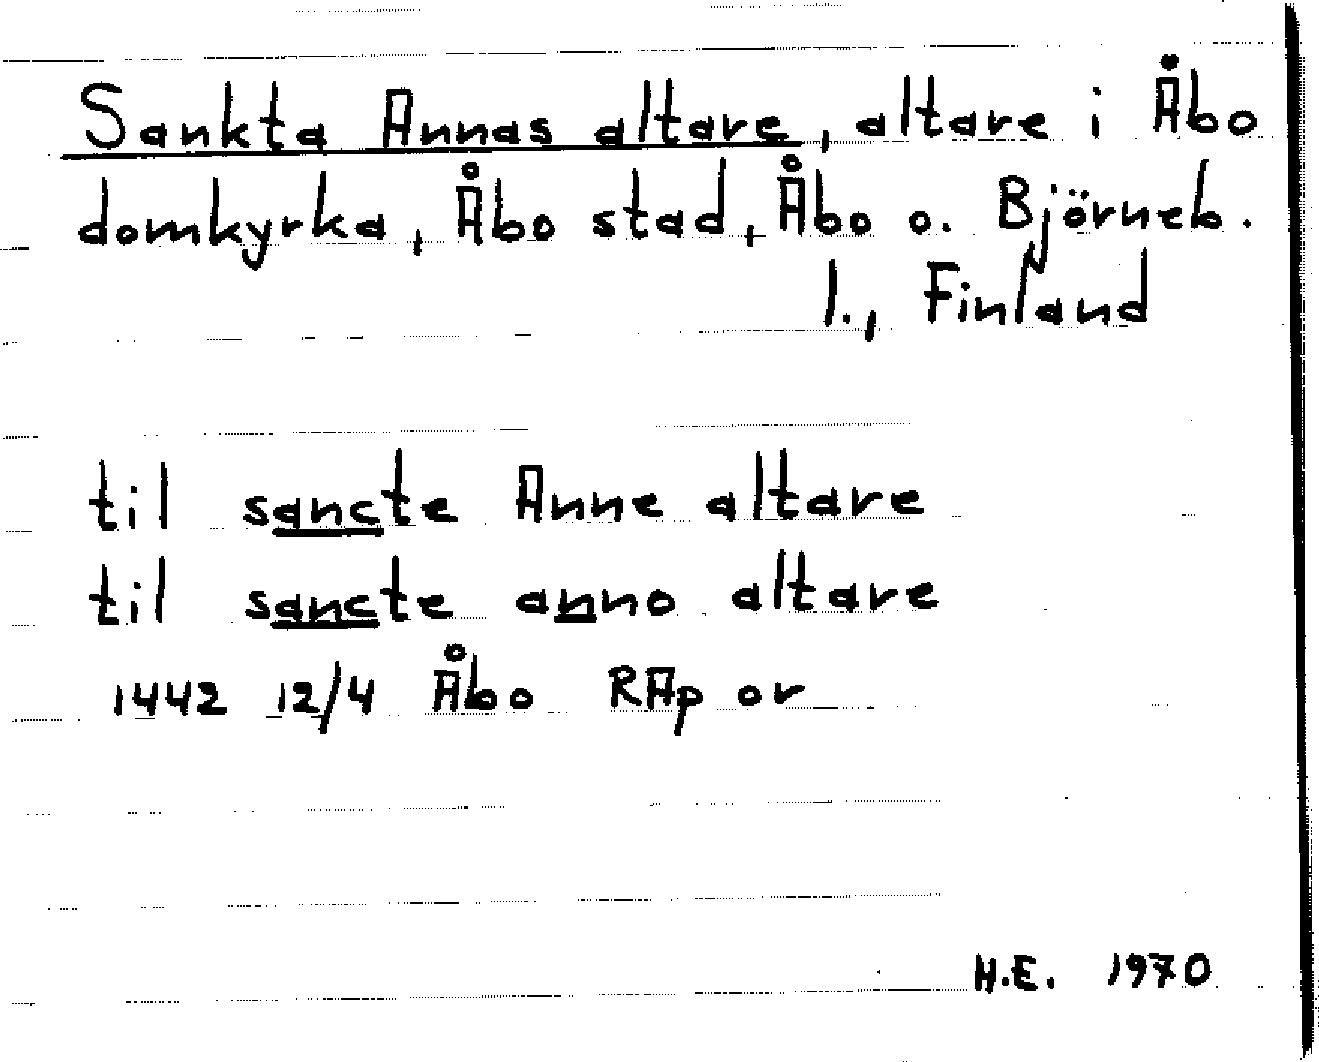 Sankta Annas altare, altare i Åbo
domkyrka, Åbo stad, Åbo o. Björneb.
l., Finland
til sancte Anne altare
til sancte anno altare
1442 12/4 Åbo RAp or
H.E. 1970